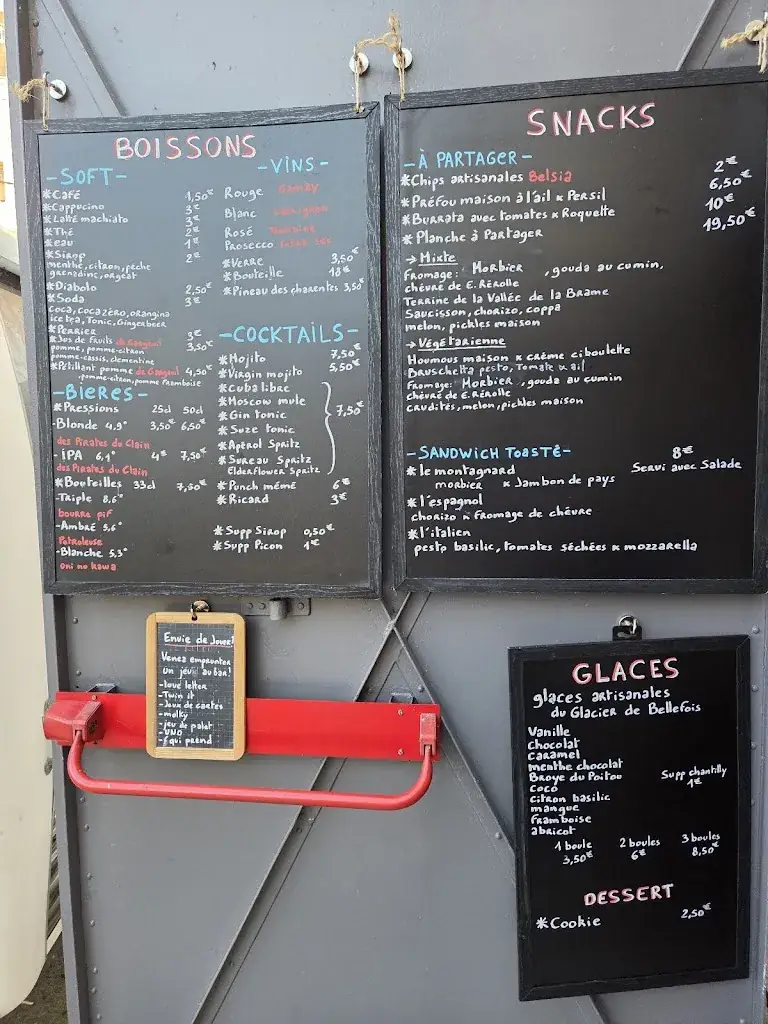 BOISSONS
-SOFT-
*Café 1,50€
*Cappucino 3€
*Latté machiato 3€
*Thé 2€
*eau 1€
*Sirop 2€
menthe, citron, pêche
grenadine, orgeat
*Diabolo 2,50€
*Soda 3€
coca, coca zéro, orangina
ice tea, Tonic, Gingerbeer
*Perrier 3€
*Jus de Fruits de Gargouil 3,50€
pomme, pomme-citron
pomme-cassis, clementine
*Pétillant pomme de Gargouil 4,50€
,pomme-citron, pomme Framboise
-BIERES-
*Pressions 25cl 50cl
-Blonde 4,9° 3,50€ 6,50€
des Pirates du Clain
-IPA 6,1° 4€ 7,50€
des Pirates du Clain
*Bouteilles 33cl 7,50€
-Triple 8,6°
bourre pif
-Ambré 5,6°
Petroleuse
-Blanche 5,3°
oni no kawa
-VINS-
Rouge
Blanc
Rosé
Prosecco
*Verre 3,50€
*Bouteille 18€
*Pineau des charentes 3,50€
-COCKTAILS-
*Mojito 7,50€
*Virgin mojito 5,50€
*Cuba libre
*Moscow mule
*Gin tonic 7,50€
*Suze tonic
*Apérol Spritz
*Sureau Spritz
Elderflower Spritz
*Punch mémé 6€
*Ricard 3€
*Supp Sirop 0,50€
*Supp Picon 1€
SNACKS
-À PARTAGER-
*Chips artisanales Belsia 2€
*Préfou maison à l'ail x Persil 6,50€
*Burrata avec tomates x Roquette 10€
*Planche à Partager 19,50€
→ Mixte
Fromage: Morbier , gouda au cumin,
chèvre de E.Rérolle
Terrine de la Vallée de la Brame
Saucisson, chorizo, coppa
melon, pickles maison
→ Végétarienne
Houmous maison x crème ciboulette
Bruschetta pesto, Tomate x ail
Fromage: Morbier , gouda au cumin
chèvre de E.Rérolle
crudités, melon, pickles maison
-SANDWICH TOASTÉ- 8€
Servi avec Salade
*le montagnard
morbier x Jambon de pays
*l'espagnol
chorizo x Fromage de chèvre
*l'italien
pesto basilic, tomates séchées x mozzarella
Envie de Jouer!
Venez emprunter
un jeu au bar!
-love letter
-Twin it
-Jeux de cartes
-molky
-jeu de palet
-UNO
-6 qui prend
GLACES
glaces artisanales
du Glacier de Bellefois
Vanille
chocolat
caramel
menthe chocolat
Broye du Poitou
coco
citron basilic
mangue
framboise
abricot
Supp chantilly
1€
1 boule 2 boules 3 boules
3,50€ 6€ 8,50€
DESSERT
*Cookie 2,50€